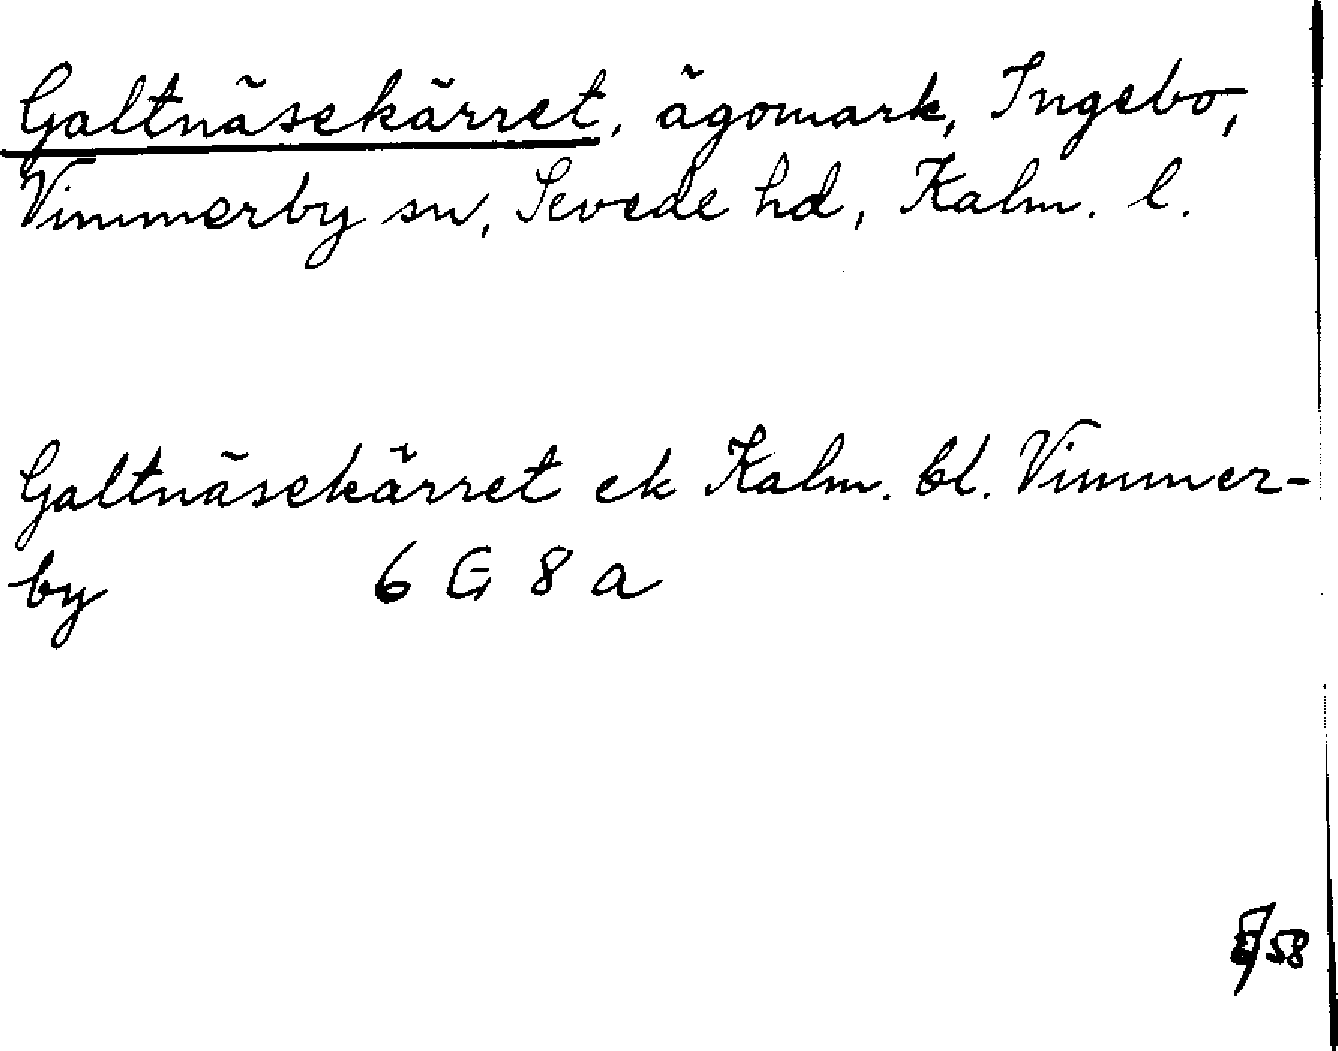 Galtnäsekärret, ägomark, Ingebo,
Vimmerby sn, Sevede hd, Kalm. l.
Galtnäsekärret ek Kalm. bl. Vimmer-
by 6 G 8 a
58